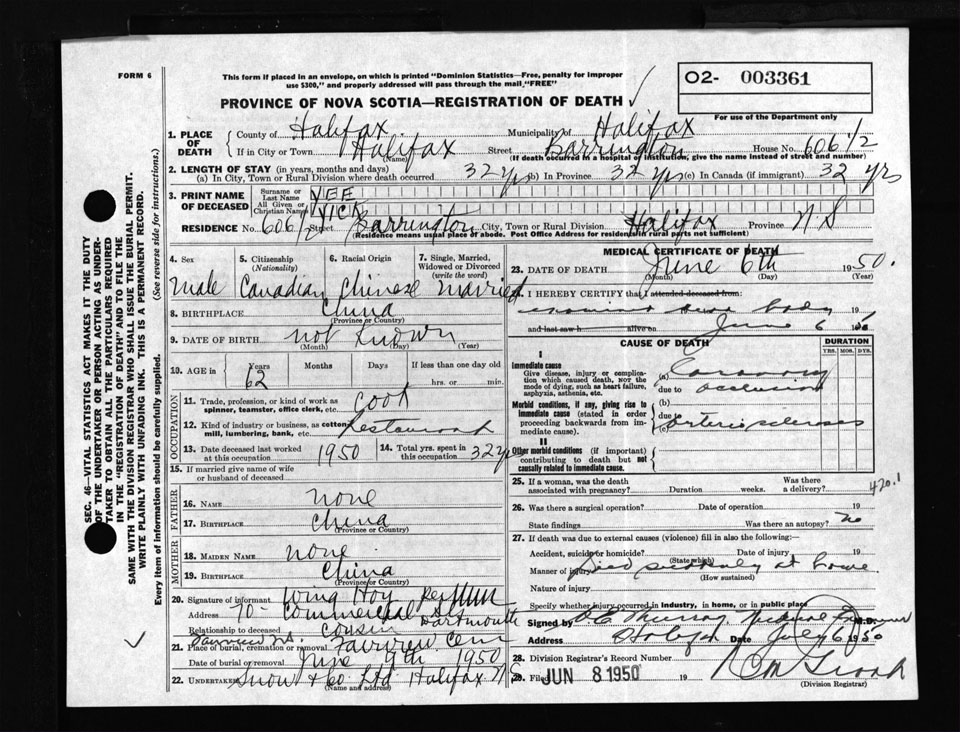 FORM 6
This form if placed in an envelope, on which is printed "Dominion Statistics—Free, penalty for improper
use $300," and properly addressed will pass through the mail "FREE"
PROVINCE OF NOVA SCOTIA—REGISTRATION OF DEATH
O2- 003361
For use of the Department only
1. PLACE OF DEATH
County of Halifax Municipality of Halifax
If in City or Town Halifax Street Barrington House No. 606 1/2
(Name) (If death occurred in a hospital or institution, give the name instead of street and number)
2. LENGTH OF STAY (in years, months and days)
(a) In City, Town or Rural Division where death occurred 32 yrs (b) In Province 32 yrs (c) In Canada (if immigrant) 32 yrs
3. PRINT NAME OF DECEASED
Surname or Last Name YEE
All Given or Christian Names VICK
RESIDENCE No. 606 1/2 Street Barrington City, Town or Rural Division Halifax Province N.S
(Residence means usual place of abode. Post Office Address for residents in rural parts not sufficient)
4. Sex 5. Citizenship (Nationality) 6. Racial Origin 7. Single, Married, Widowed or Divorced (write the word)
Male Canadian Chinese Married
8. BIRTHPLACE China
(Province or Country)
9. DATE OF BIRTH not known
(Month) (Day) (Year)
10. AGE in Years Months Days If less than one day old
62 hrs. or min.
OCCUPATION
11. Trade, profession, or kind of work as spinner, teamster, office clerk, etc. Cook
12. Kind of industry or business, as cotton mill, lumbering, bank, etc. Restaurant
13. Date deceased last worked at this occupation 1950 14. Total yrs. spent in this occupation 32 yrs
15. If married give name of wife or husband of deceased
FATHER
16. NAME none
17. BIRTHPLACE China
(Province or Country)
MOTHER
18. MAIDEN NAME none
19. BIRTHPLACE China
(Province or Country)
20. Signature of informant Wing Hoy
Address 70- Commercial St Dartmouth
Relationship to deceased cousin
21. Place of burial, cremation or removal Fairview Cem
Date of burial or removal June 9th 1950
22. Undertaker Snow & Co Ltd Halifax N.S
(Name and address)
MEDICAL CERTIFICATE OF DEATH
23. DATE OF DEATH June 6th 1950.
(Month) (Day) (Year)
24. I HEREBY CERTIFY that I attended deceased from:
body 19
and last saw h alive on June 6 19
CAUSE OF DEATH DURATION
YRS. MOS. DYS.
I
Immediate cause
Give disease, injury or complication which caused death, not the mode of dying, such as heart failure, asphyxia, asthenia, etc.
(a) Coronary
due to occlusion
Morbid conditions, if any, giving rise to immediate cause (stated in order proceeding backwards from immediate cause).
(b)
due to
(c) arteriosclerosis
II
Other morbid conditions (if important) contributing to death but not causally related to immediate cause.
25. If a woman, was the death associated with pregnancy? Duration weeks. Was there a delivery?
420.1
26. Was there a surgical operation? Date of operation 19
State findings Was there an autopsy? No
27. If death was due to external causes (violence) fill in also the following:
Accident, suicide or homicide? Date of injury 19
(State which)
Manner of injury Died suddenly at home
(How sustained)
Nature of injury
Specify whether injury occurred in industry, in home, or in public place
Signed by Murray Medical Examiner
Address Halifax Date July 6 1950
28. Division Registrar's Record Number
29. Filed JUN 8 1950 19
(Division Registrar)
SEC. 46—VITAL STATISTICS ACT MAKES IT THE DUTY
OF THE UNDERTAKER OR PERSON ACTING AS UNDER-
TAKER TO OBTAIN ALL THE PARTICULARS REQUIRED
IN THE "REGISTRATION OF DEATH" AND TO FILE THE
SAME WITH THE DIVISION REGISTRAR WHO SHALL ISSUE THE BURIAL PERMIT.
WRITE PLAINLY WITH UNFADING INK. THIS IS A PERMANENT RECORD.
Every item of information should be carefully supplied. (See reverse side for instructions.)